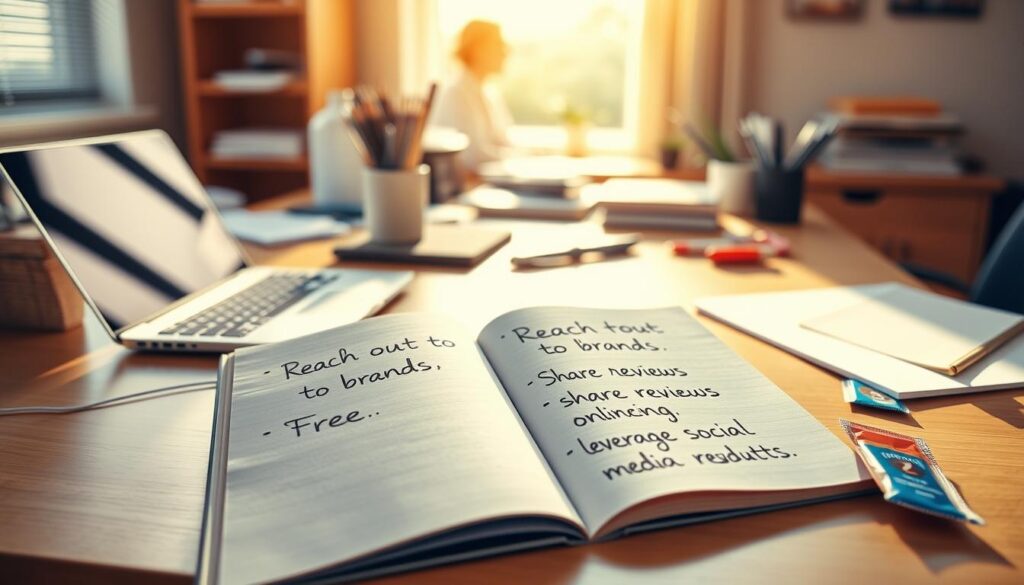 - Reach out to
to brands,
- Free..
- Reach tout
to brands.
- Share reviews
- share reviews
onlincing.
- leverage social
media resdutts.